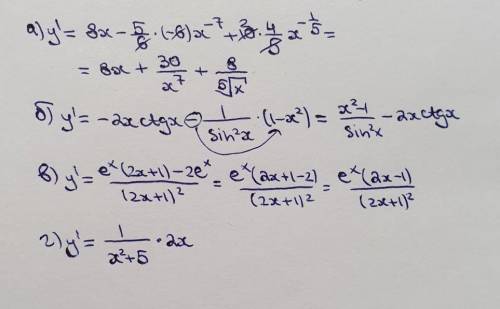 а) y' = 8x - 5/6 · (-6)x^-7 + 10 · 4/5 x^-1/5 =
= 8x + 30/x^7 + 8/⁵√x
б) y' = -2x ctgx - 1/sin²x · (1-x²) = x²-1/sin²x - 2x ctgx
в) y' = e^x(2x+1)-2e^x/(2x+1)² = e^x(2x+1-2)/(2x+1)² = e^x(2x-1)/(2x+1)²
г) y' = 1/x²+5 · 2x